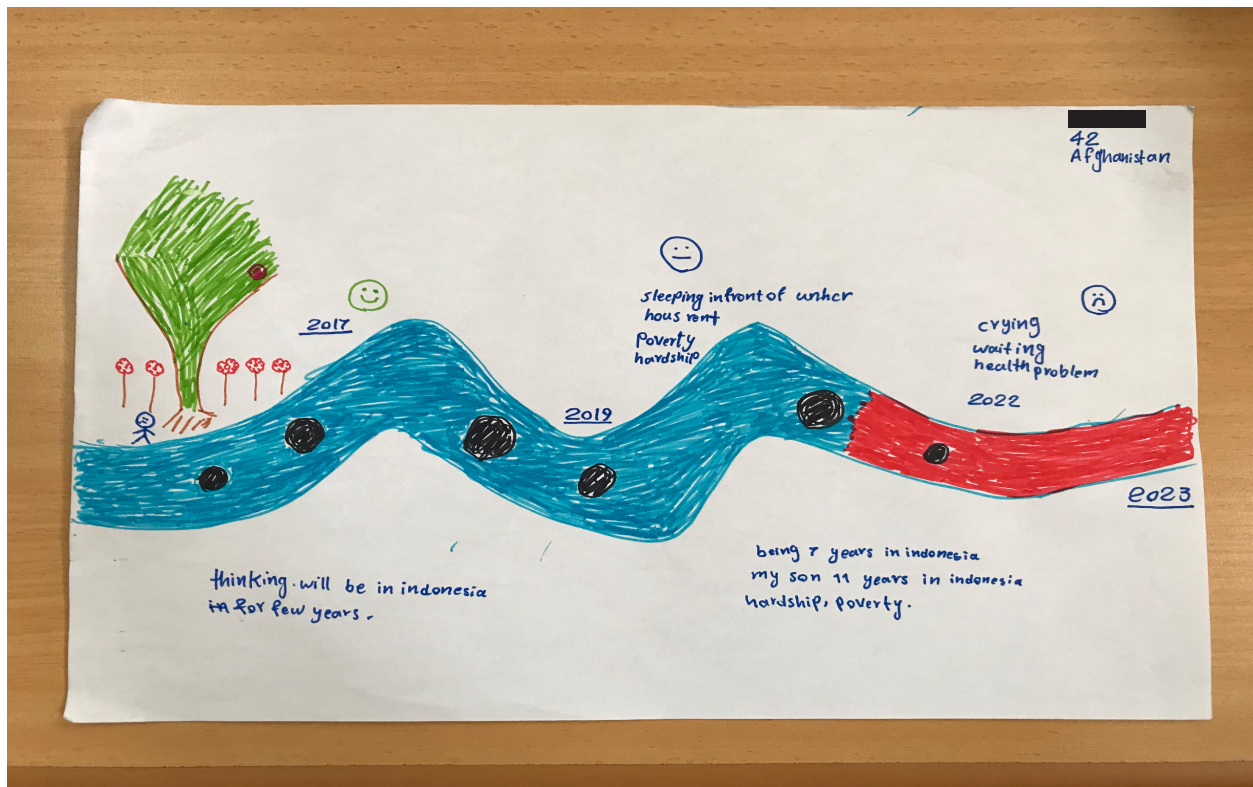 42
Afghanistan
2017
sleeping infront of unhcr
hous rent
Poverty
hardship
crying
waiting
health problem
2019
2022
2023
thinking. will be in indonesia
in for few years.
being 7 years in indonesia
my son 11 years in indonesia
hardship, poverty.